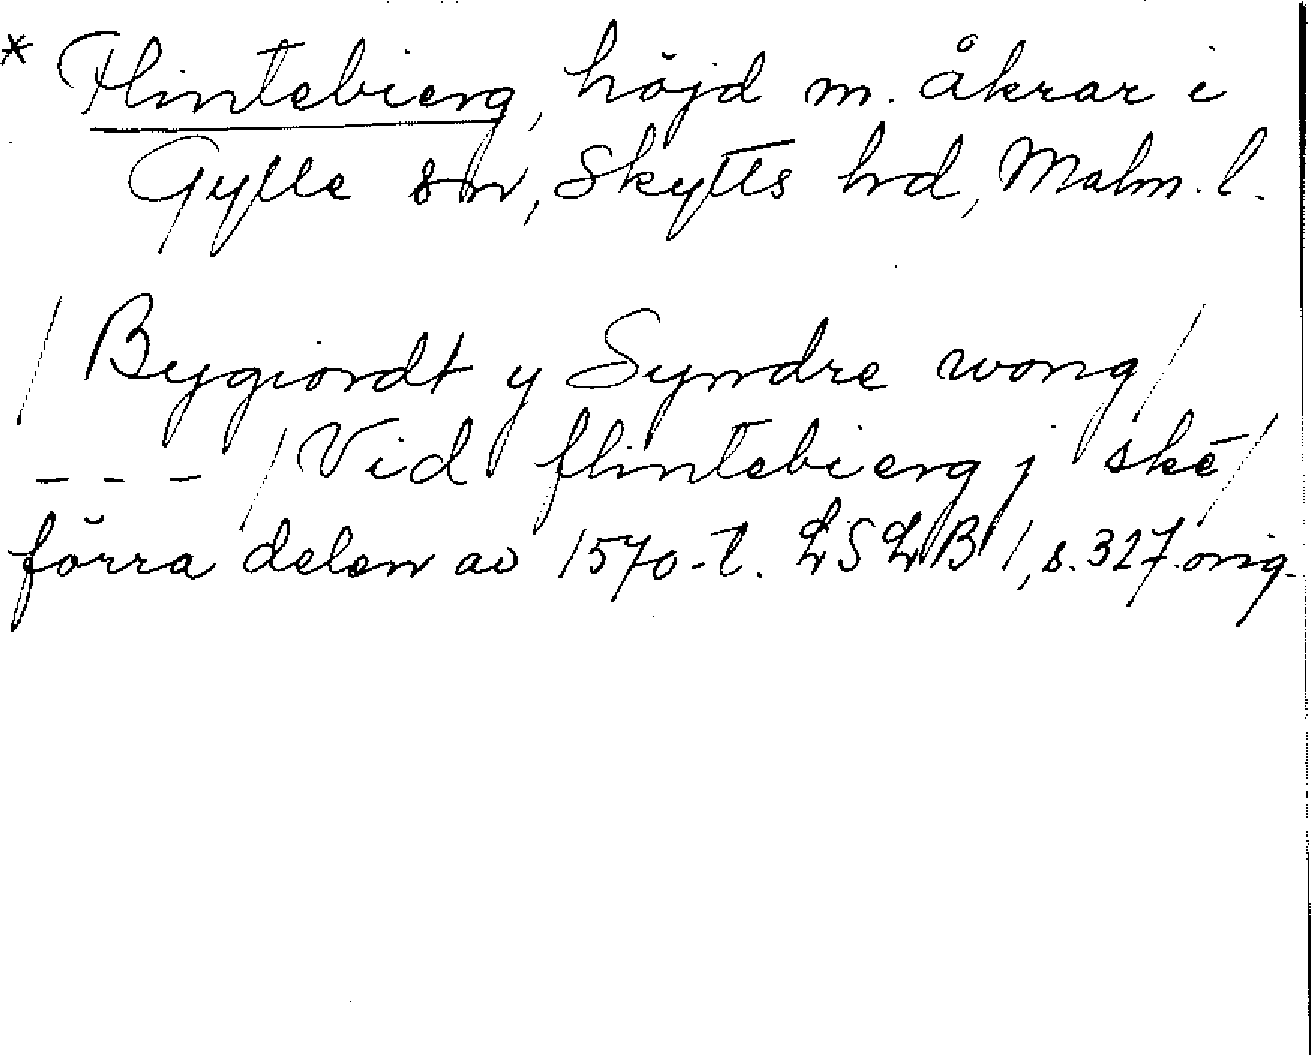 * Flintebierg, höjd m. åkrar i
Gylle sn, Skytts hd, Malm. l.
/ Bygiordt y Syndre wong /
- - - / Vid flintebierg j skē /
förra delen av 1570-t. LSLB 1, s. 327. orig.